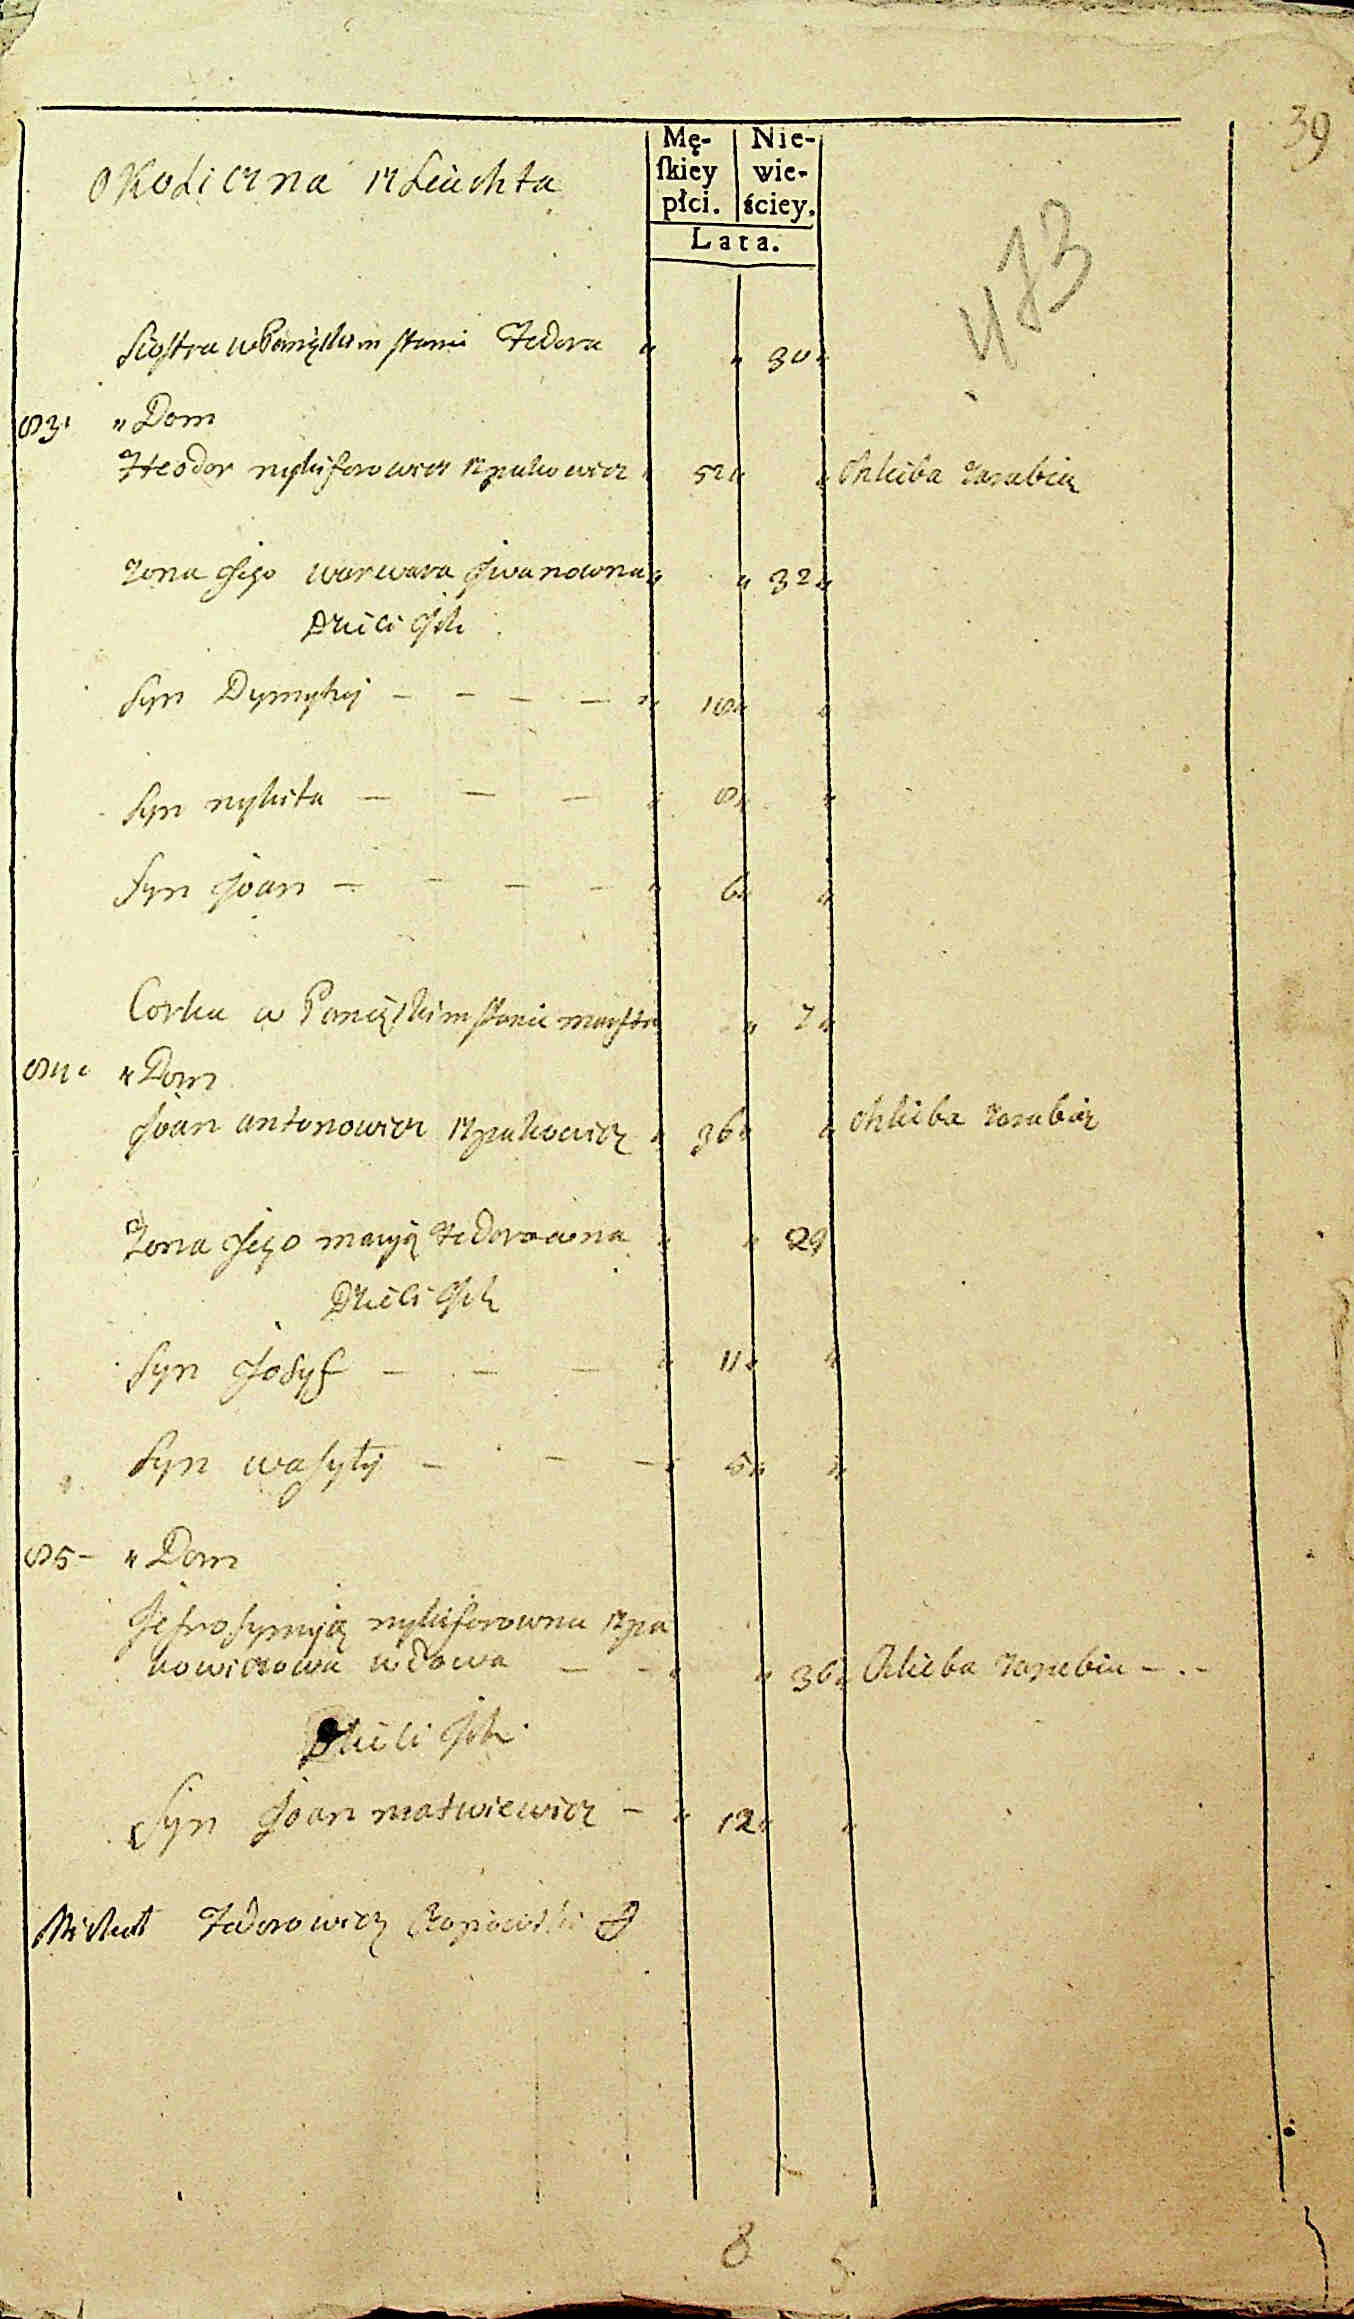 39
Okoliczna szlachta
Mę-
skiey
płci.
Nie-
wie-
ściey.
Lata.
473
Siostra w Panięskim stanie Fedora " " 30 "
83 " Dom
Fteodor nykiforowicz szpakowicz " 52 " " Chlieba zarabia
żona Jego warwara Jwanowna " " 32 "
Dzieci Jch
Syn Dymytry — — — — " 18 " "
Syn nykita — — — " 8 " "
Syn Joan — — — — " 6 " "
Corka w Panięskim stanie " 7 "
84 " Dom
Joan antonowicz szpakowicz " 36 " " chlieba zarabia
żona Jego maryja Fedorowna " " 29
Dzieci Jch
Syn Josyf — — — " 11 " "
Syn wasyly — — — " 5 " "
85 — " Dom
Jefrosymija nykiforowna szpa
kowiczowa wdowa — — " " 36 " Chlieba zarabia — . —
Dzieci Jch
Syn Joan matwiewicz — " 12 " "
Michał Fedorowicz
8 5